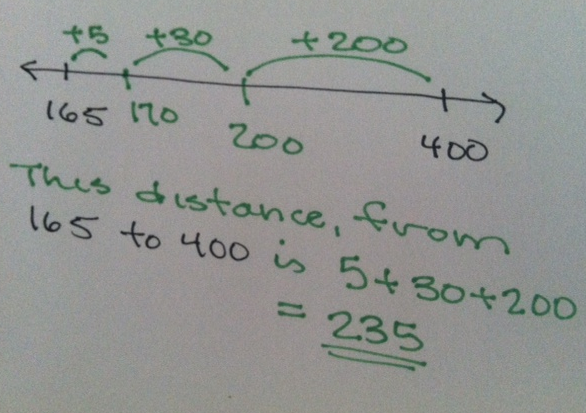 +5 +30 +200
165 170 200 400
This distance, from
165 to 400 is 5+30+200
= 235